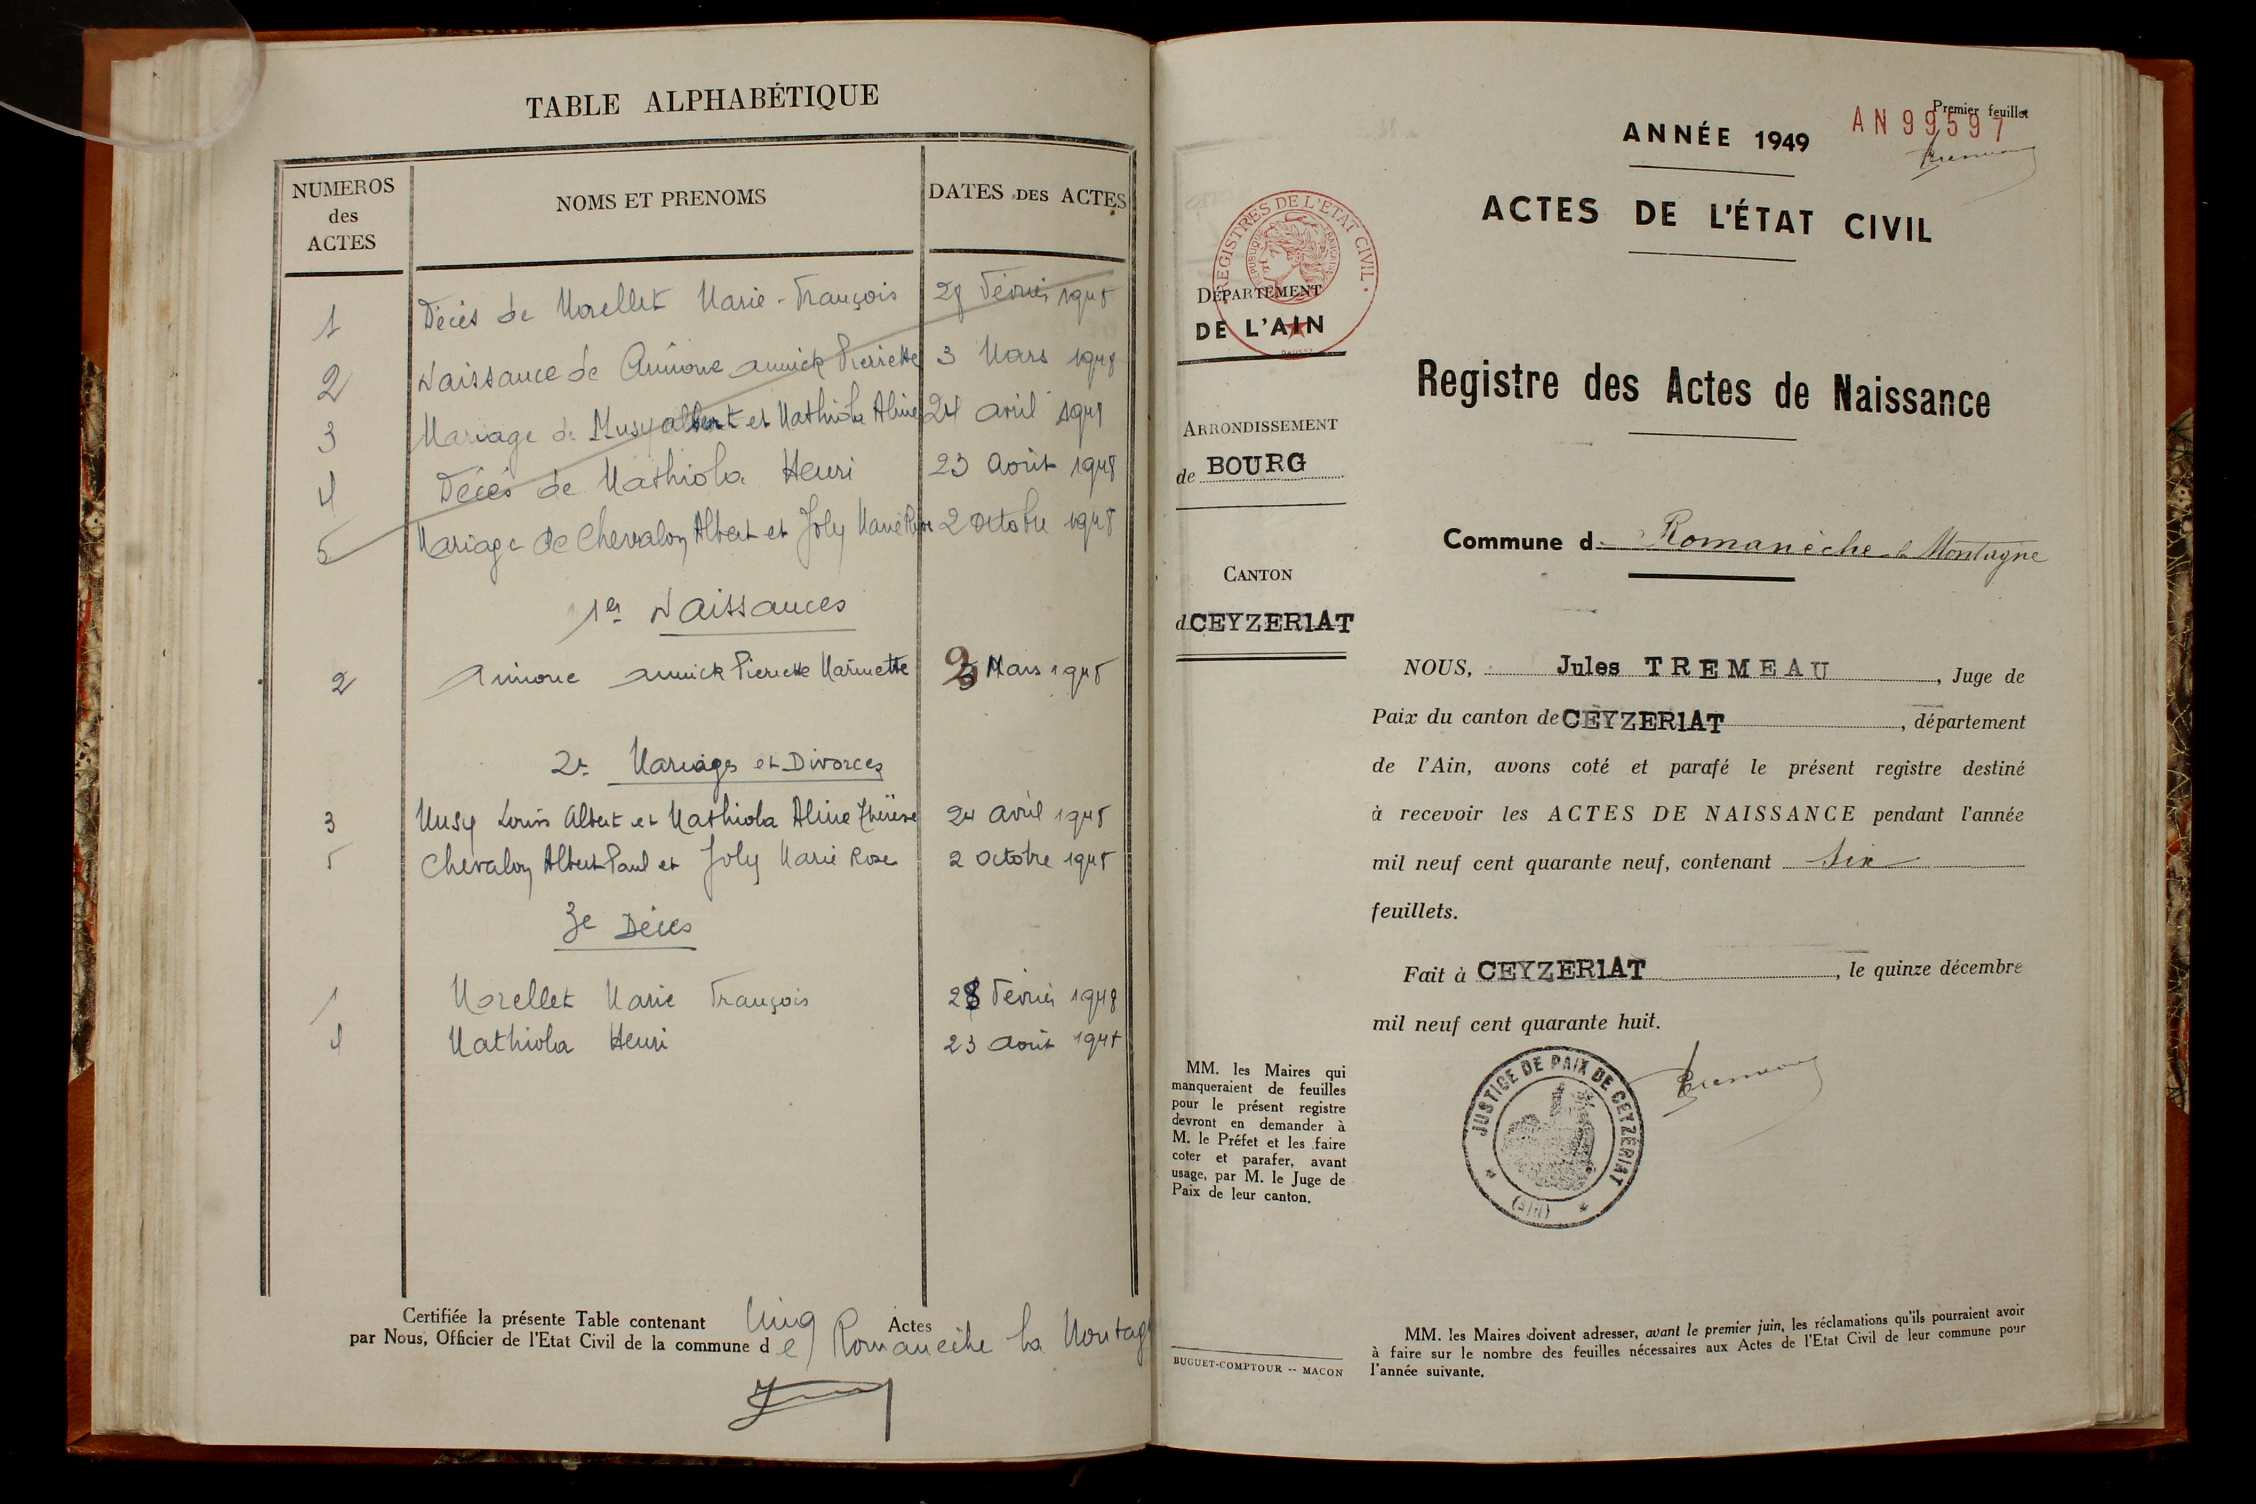 TABLE ALPHABÉTIQUE
NUMEROS des ACTES
NOMS ET PRENOMS
DATES DES ACTES
1 Décès de Morellet Marie-François 28 Février 1948
2 Naissance de Annick Pierrette 3 Mars 1948
3 Mariage de Musy Albert et Mathiola Aline 24 avril 1948
4 Décès de Mathiola Henri 23 août 1948
5 Mariage de Chevalon Albert et Joly Marie Rose 2 octobre 1948
1er Naissances
2 Annick Pierrette 3 Mars 1948
2e Mariages et Divorces
3 Musy Louis Albert et Mathiola Aline Thérèse 24 avril 1948
5 Chevalon Albert Paul et Joly Marie Rose 2 octobre 1948
3e Décès
1 Morellet Marie François 28 Février 1948
4 Mathiola Henri 23 août 1948
Certifiée la présente Table contenant Cinq Actes
par Nous, Officier de l'Etat Civil de la commune de Romanèche la Montag
Premier feuillet
AN 99597
ANNÉE 1949
ACTES DE L'ÉTAT CIVIL
REGISTRES DE L'ETAT CIVIL
DÉPARTEMENT
DE L'AIN
ARRONDISSEMENT
de BOURG
CANTON
d CEYZERIAT
Registre des Actes de Naissance
Commune d. Romanèche-la Montagne
NOUS, Jules TREMEAU, Juge de
Paix du canton de CEYZERIAT, département
de l'Ain, avons coté et parafé le présent registre destiné
à recevoir les ACTES DE NAISSANCE pendant l'année
mil neuf cent quarante neuf, contenant six
feuillets.
Fait à CEYZERIAT, le quinze décembre
mil neuf cent quarante huit.
JUSTICE DE PAIX DE CEYZÉRIAT
(AIN)
MM. les Maires qui
manqueraient de feuilles
pour le présent registre
devront en demander à
M. le Préfet et les faire
coter et parafer, avant
usage, par M. le Juge de
Paix de leur canton.
BUGUET-COMPTOUR -- MACON
MM. les Maires doivent adresser, avant le premier juin, les réclamations qu'ils pourraient avoir
à faire sur le nombre des feuilles nécessaires aux Actes de l'Etat Civil de leur commune pour
l'année suivante.